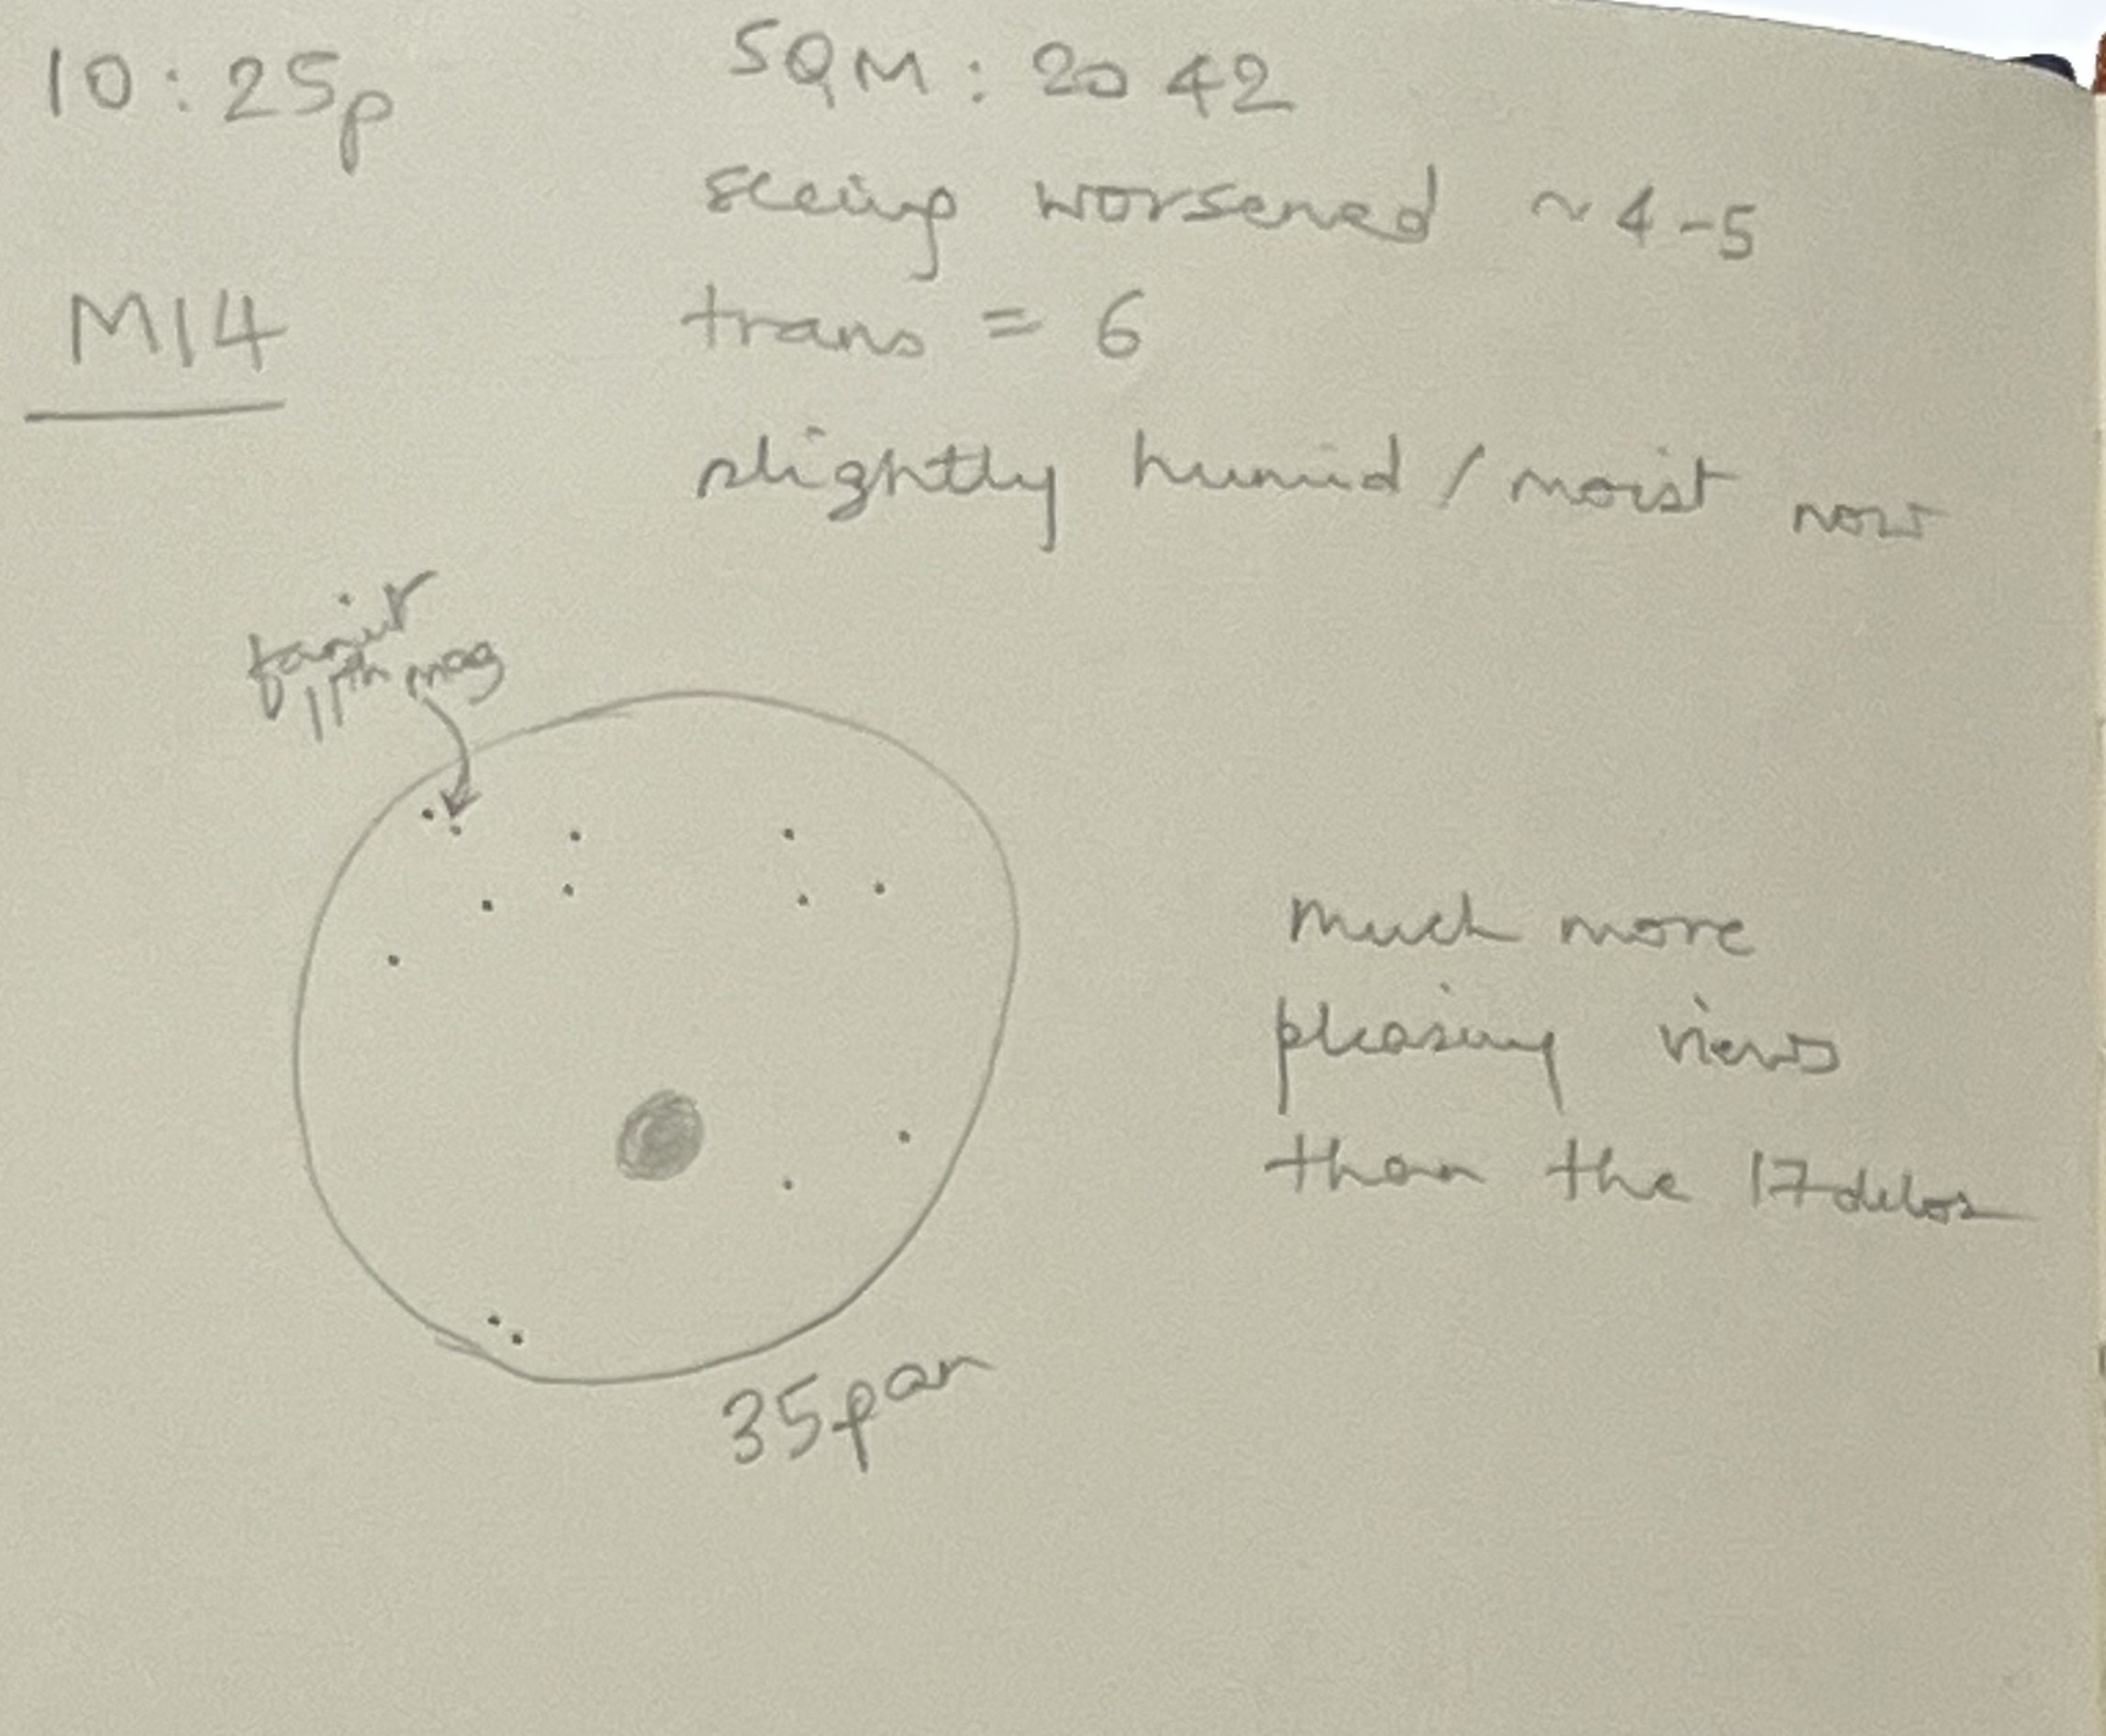 10:25p
SQM: 20 42
seeing worsened ~4-5
M14
trans = 6
slightly humid / moist now
faint
11th mag
much more
pleasing views
than the 17delos
35pan